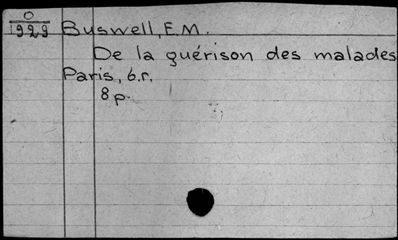 O
1929
Buswell, E.M.
De la guérison des malades
Paris, б.г.
8 p.